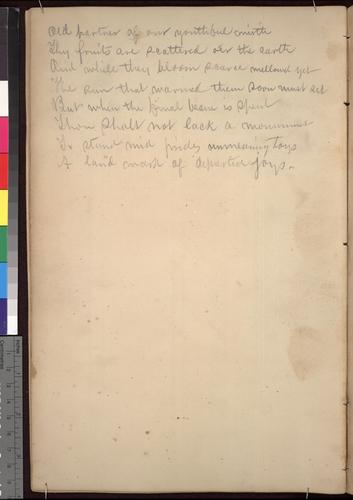 Old partner of our youthful mirth
Thy fruits are scattered oer the earth
And while they bloom scarce mellowd yet
The sun that warmed them soon must set
But when the final beam is spent
Thou shalt not lack a monument
To stand mid prides unmeaning toys
A land mark of departed joys.